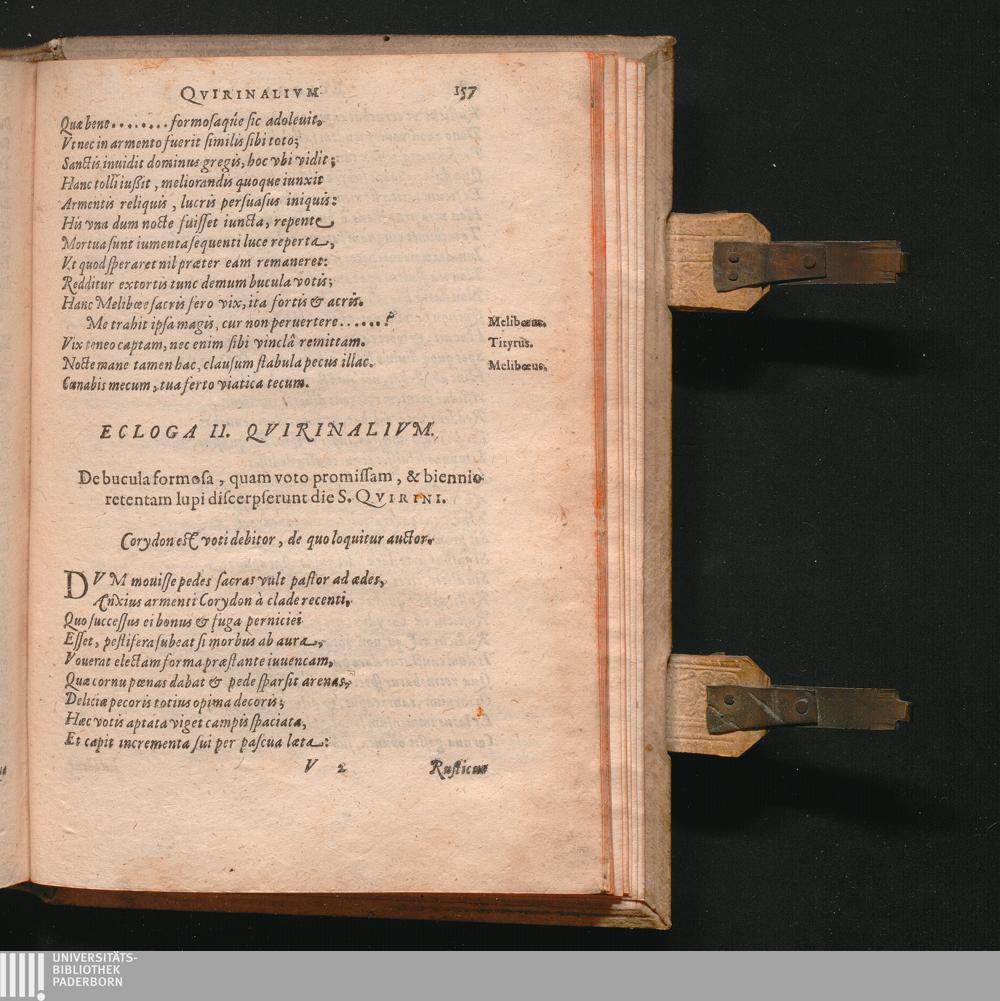 QVIRINALIVM 157
Quæ bene........ formosaq́ue sic adoleuit,
Vt nec in armento fuerit similis sibi toto;
Sanctis inuidit dominus gregis, hoc vbi vidit;
Hanc tolli iußit, meliorandis quoque iunxit
Armentis reliquis, lucris persuasus iniquis:
His vna dum nocte fuisset iuncta, repente
Mortua sunt iumenta sequenti luce reperta,
Vt quod speraret nil præter eam remaneret:
Redditur extortis tunc demum bucula votis;
Hanc Melibœe sacris fero vix, ita fortis & acris.
Me trahit ipsa magis, cur non peruertere......? Melibœus.
Vix teneo captam, nec enim sibi vinclâ remittam. Tityrus.
Nocte mane tamen hac, clausum stabula pecus illac. Melibœus.
Cœnabis mecum, tua ferto viatica tecum.
ECLOGA II. QVIRINALIVM.
De bucula formosa, quam voto promissam, & biennio
retentam lupi discerpserunt die S. QVIRINI.
Corydon est voti debitor, de quo loquitur auctor.
DVM mouisse pedes sacras vult pastor ad ædes,
Anxius armenti Corydon à clade recenti,
Quo successus ei bonus & fuga perniciei
Esset, pestifera subeat si morbus ab aura,
Vouerat electam forma præstante iuuencam,
Quæ cornu pœnas dabat & pede sparsit arenas,
Deliciæ pecoris totius opima decoris;
Hæc votis aptata viget campis spaciata,
Et capit incrementa sui per pascua læta:
V 2 Rusticus
UNIVERSITÄTS-
BIBLIOTHEK
PADERBORN